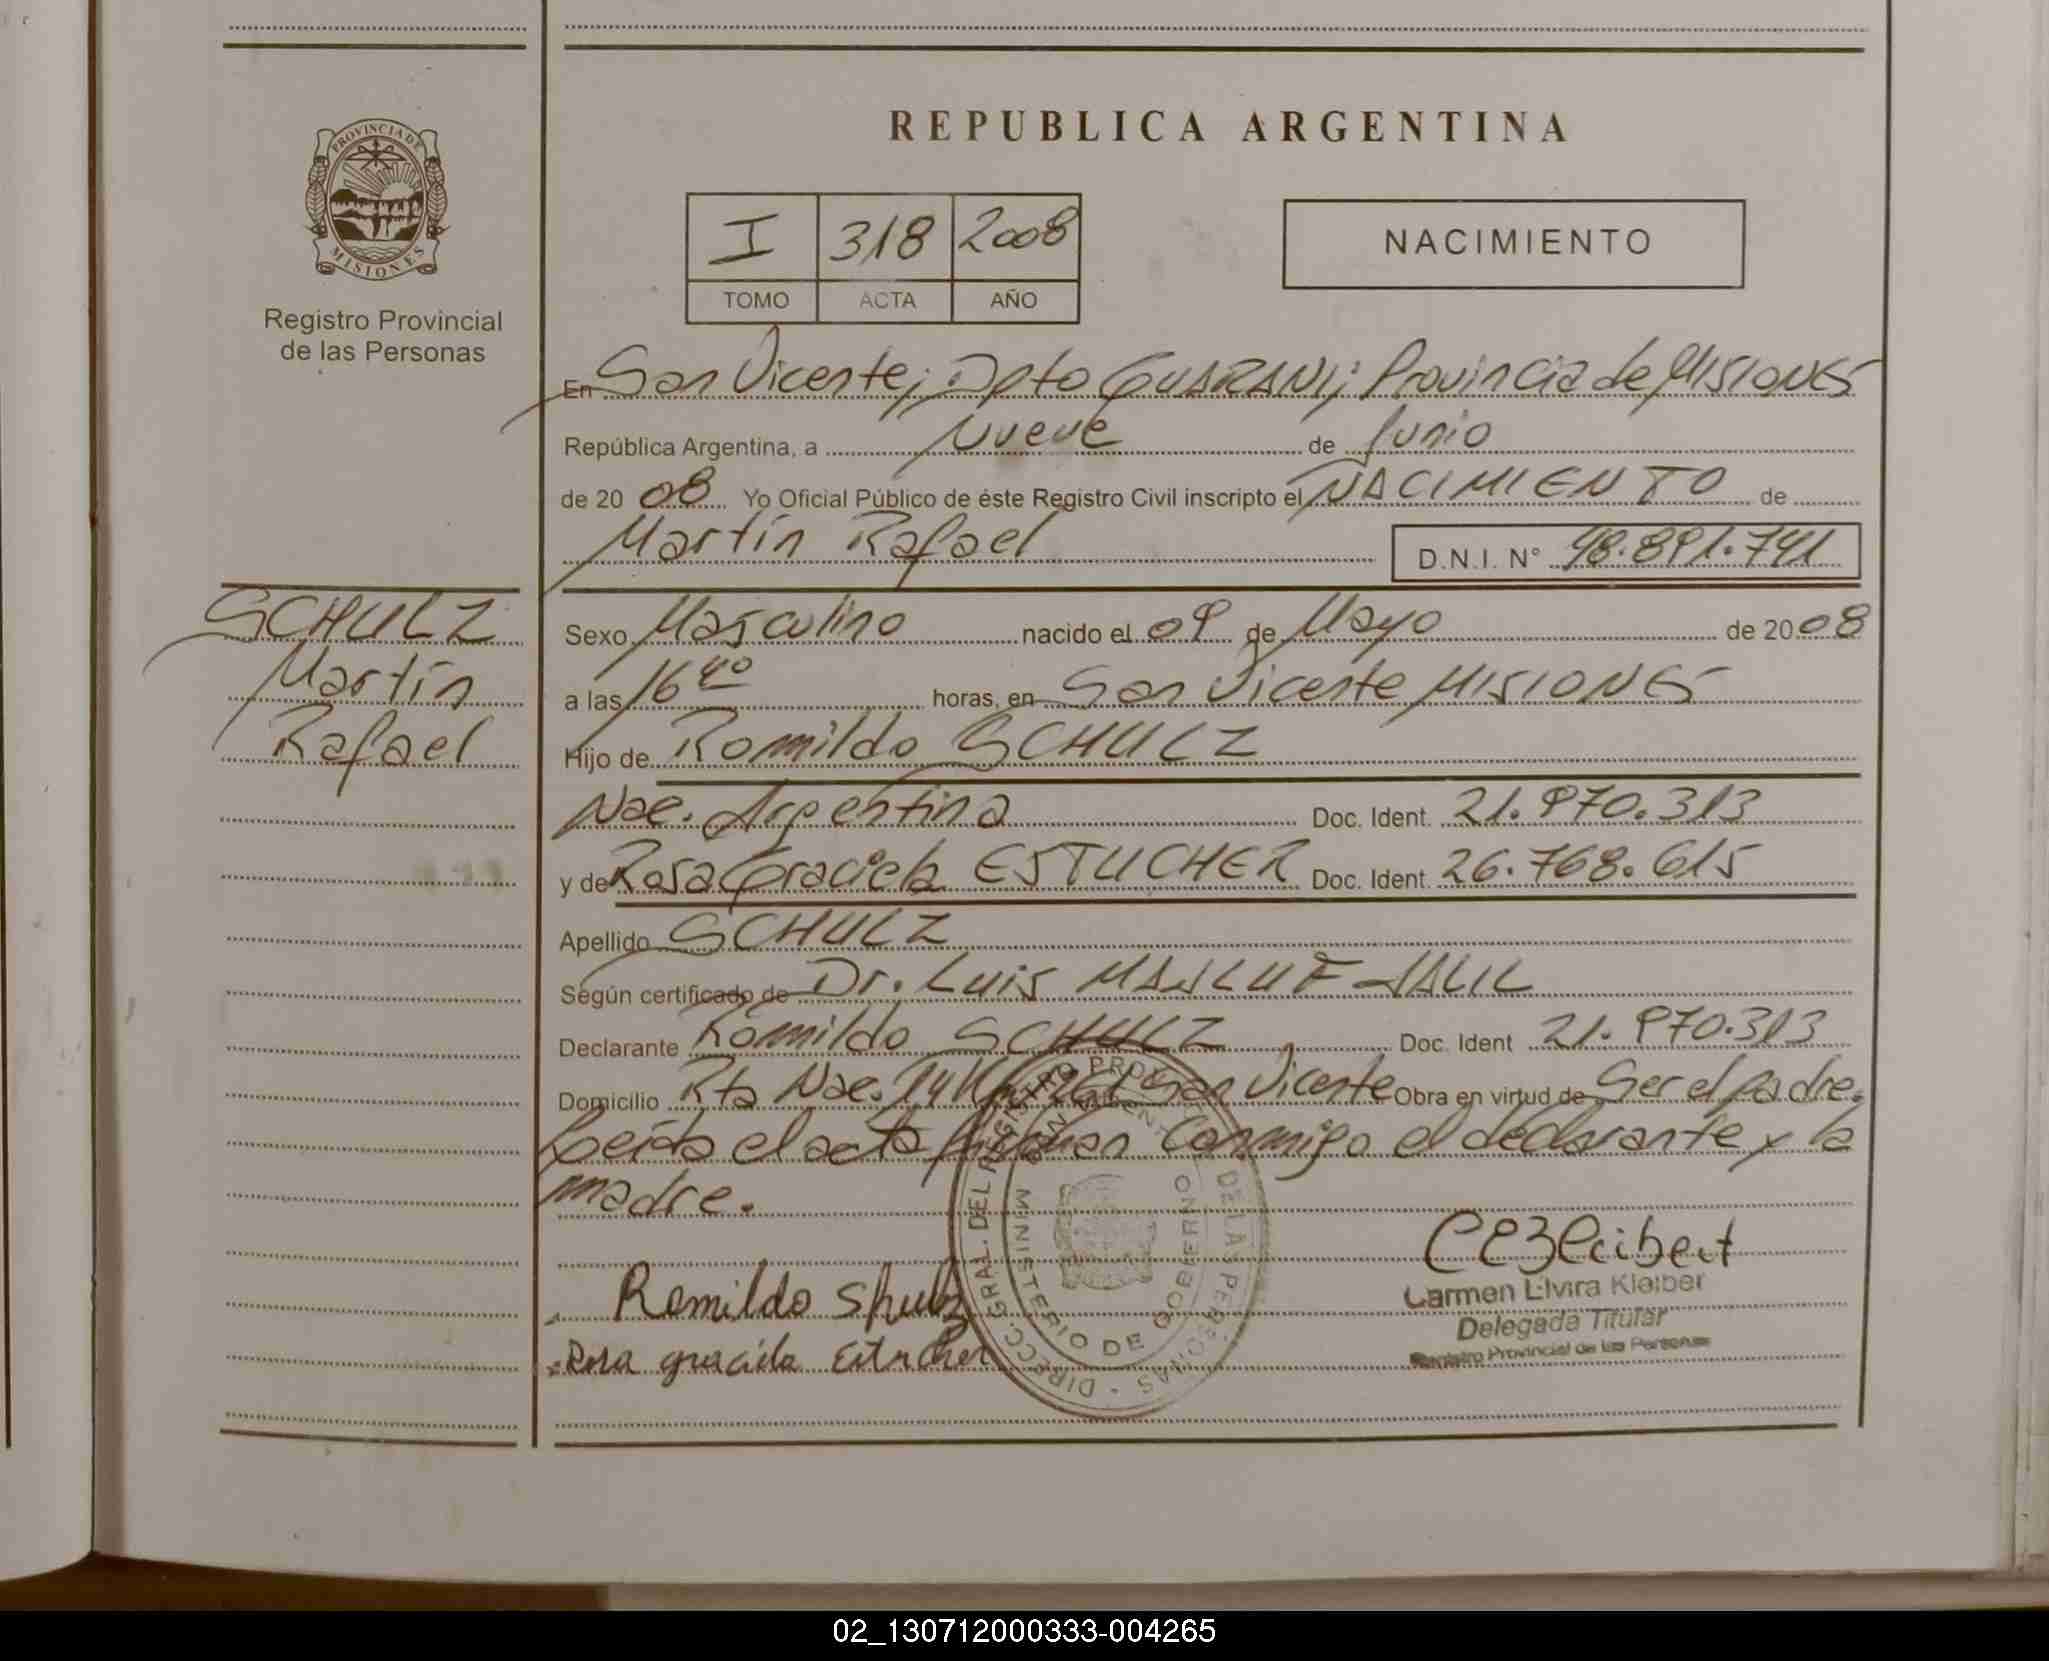 PROVINCIA DE
MISIONES
Registro Provincial
de las Personas
REPUBLICA ARGENTINA
I 318 2008
TOMO ACTA AÑO
NACIMIENTO
En San Vicente, Dpto GUARANI; Provincia de MISIONES
República Argentina, a Nueve de Junio
de 20 08 Yo Oficial Público de éste Registro Civil inscripto el NACIMIENTO de
Martín Rafael D.N.I. Nº 48.891.741
SCHULZ
Martín
Rafael
Sexo Masculino nacido el 09 de Mayo de 20 08
a las 16 40 horas, en San Vicente MISIONES
Hijo de Romildo SCHULZ
Nac. Argentina Doc. Ident. 21.970.313
y de Rosa Graciela ESTUCHER Doc. Ident. 26.768.615
Apellido SCHULZ
Según certificado de Dr. Luis MAJLUF JALIL
Declarante Romildo SCHULZ Doc. Ident 21.970.313
Domicilio Rta Nac. 14 Km San Vicente Obra en virtud de Ser el padre.
Leída el acta firman conmigo el declarante y la
madre.
Romildo Shulz
Rosa graciela Estucher
DIRECC. GRAL. DEL REGISTRO PROV. DE LAS PERSONAS
MINISTERIO DE GOBIERNO
Carmen Elvira Kleiber
Delegada Titular
Registro Provincial de las Personas
02_130712000333-004265